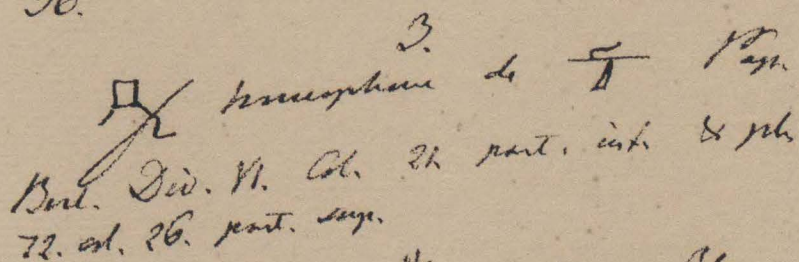 3.
homophone de Pap.
Berl. Div. VI. Col. 21 part. inf. & pl.
72. col. 26. part. sup.